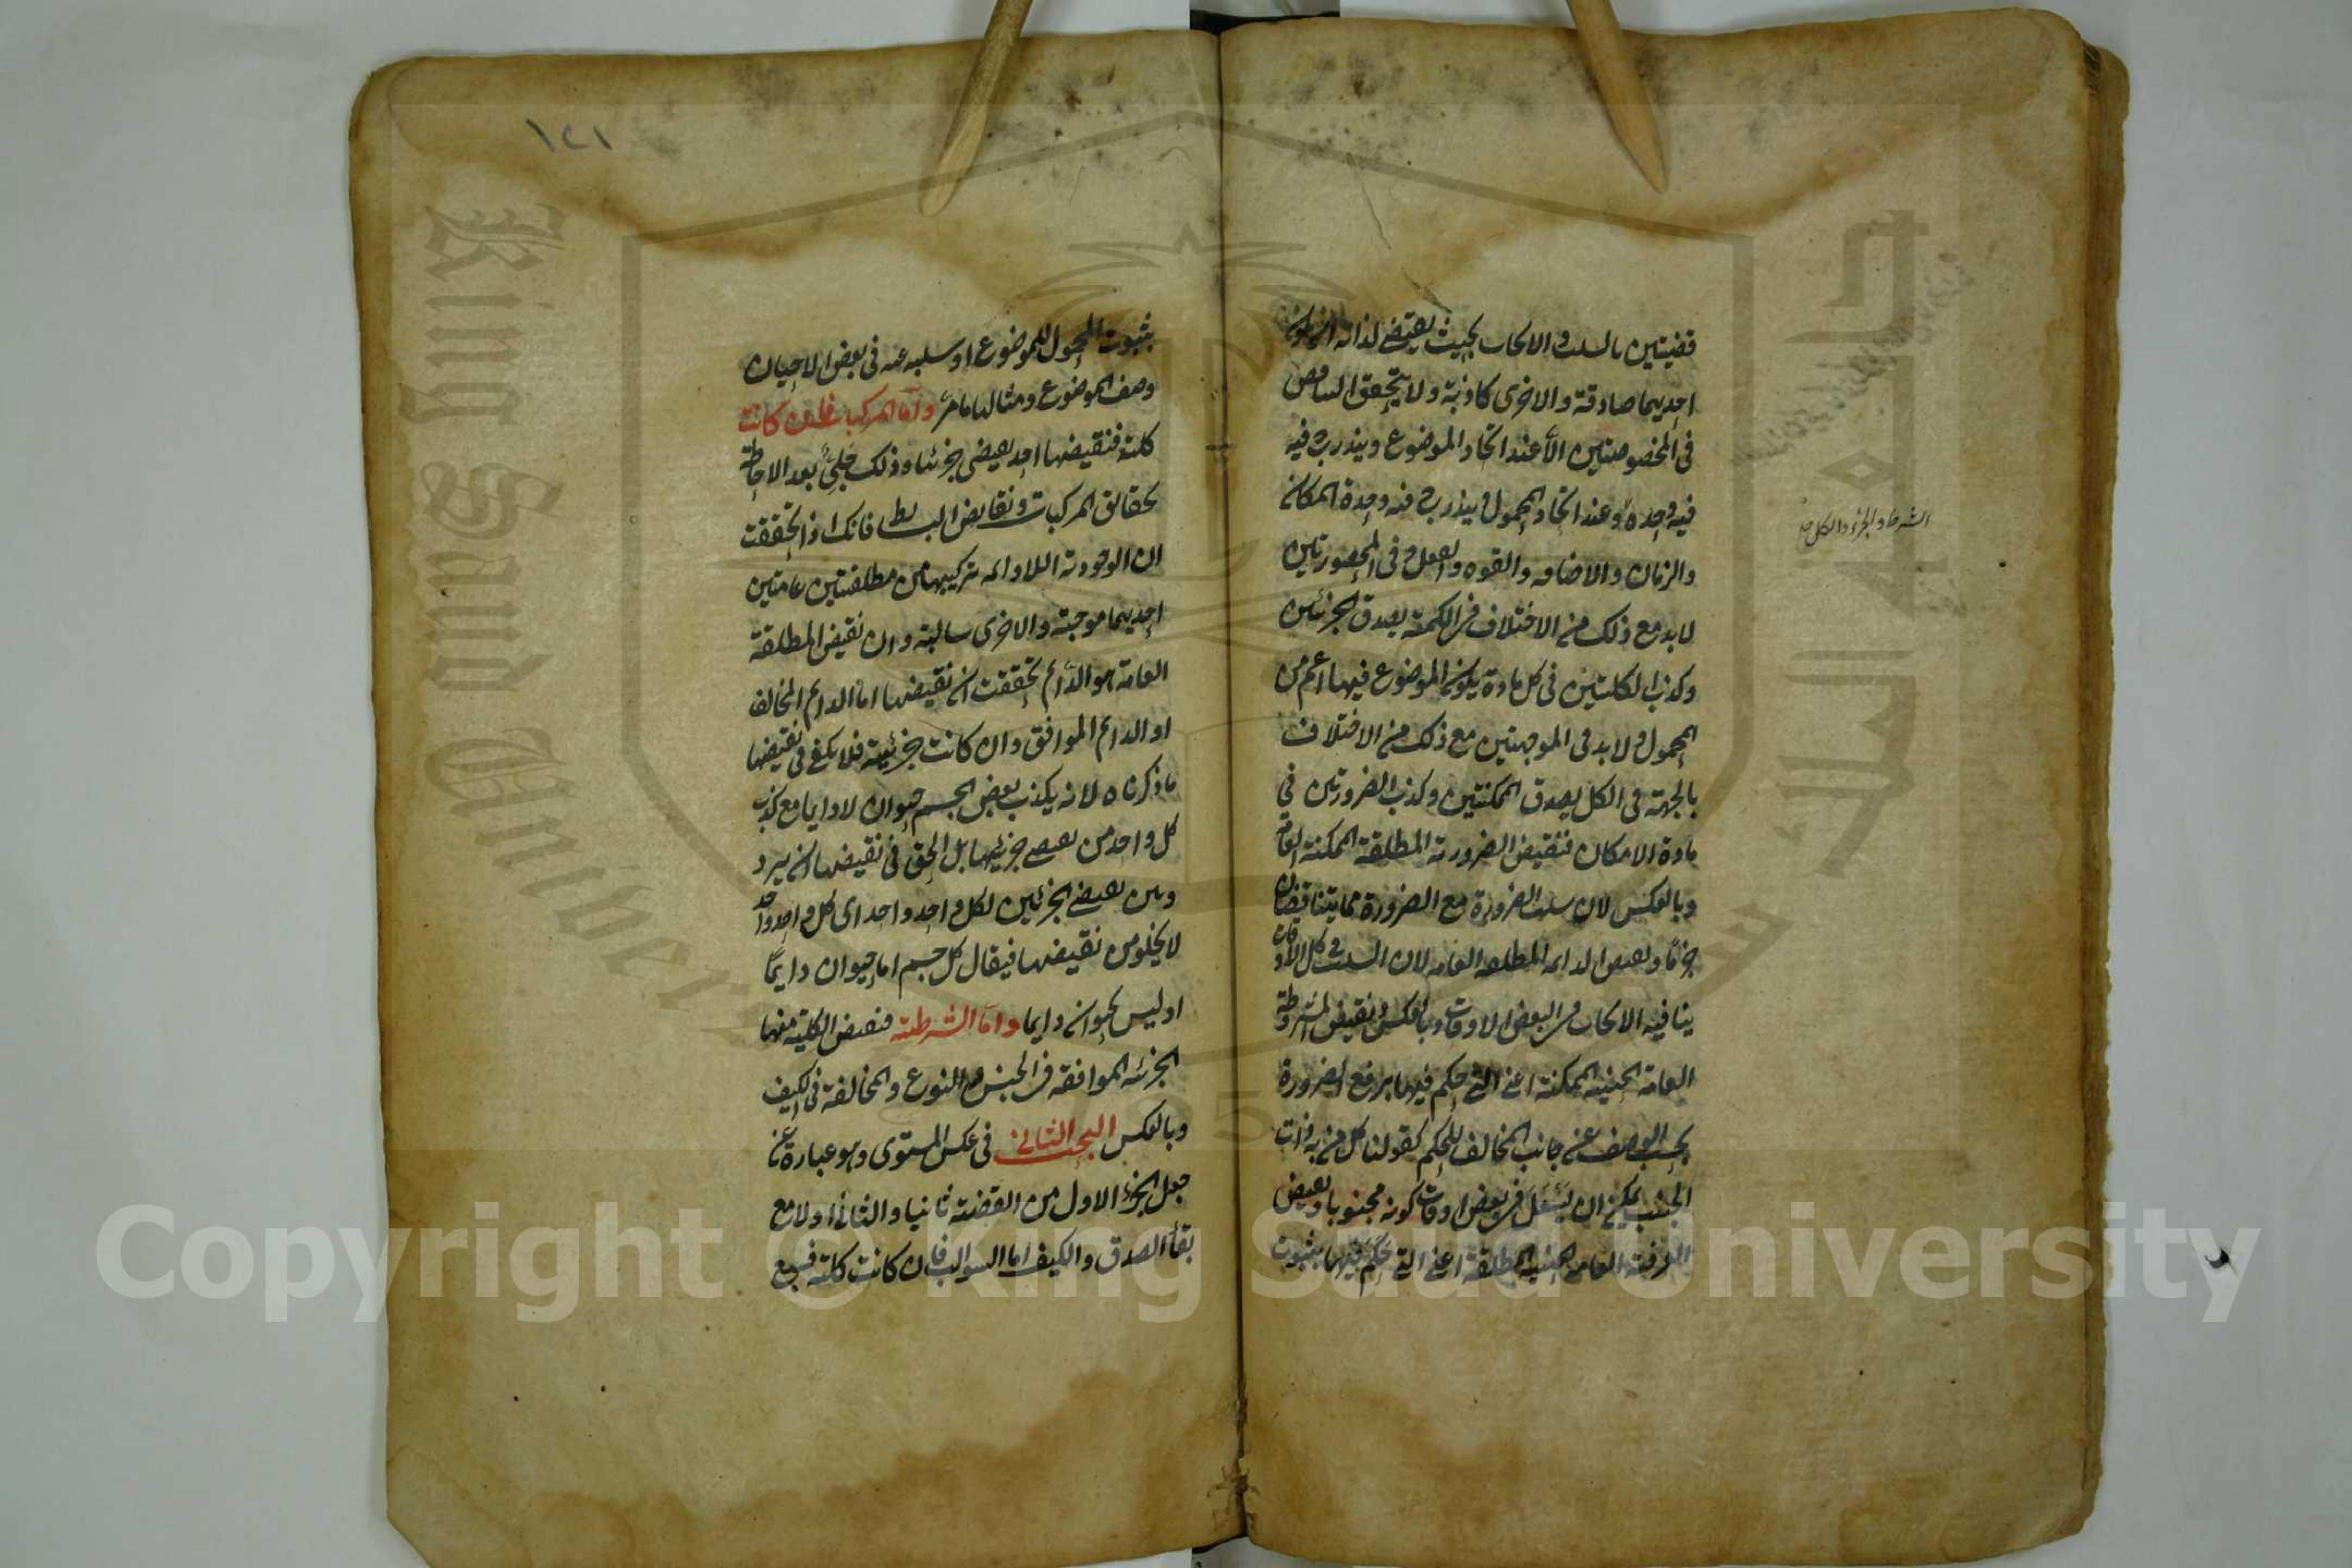 قضيتين بالسلب والايجاب بحيث يقتضى لذاته ان يكون
احديهما صادقة والاخرى كاذبة ولا يتحقق التناقض
فى المخصوصتين الا عند اتحاد الموضوع ويندرج فيه
فيه وحدة وعند اتحاد المحمول ويندرج فيه وحدة المكان
والزمان والاضافه والقوه والفعل وفى المحصورتين
لا بد مع ذلك من الاختلاف فى الكمية لصدق الجزئيتين
وكذب الكليتين فى كل مادة يكون الموضوع فيها اعم من
المحمول ولا بد فى الموجهتين مع ذلك من الاختلاف
بالجهة فى الكل لصدق الممكنتين وكذب الضرورتين فى
مادة الامكان فنقيض الضرورية المطلقة الممكنة العامة
وبالعكس لان سلب الضرورة مع الضرورة مما يتناقضان
جزما ونقيض الدائمه المطلقه العامه لان السلب فى كل الاوقات
ينافيه الايجاب فى البعض الاوقات وبالعكس ونقيض المشروطة
العامة الحينية الممكنة اعنى التى حكم فيها برفع الضرورة
بحسب الوصف عن جانب المخالف للحكم كقولنا كل من به ذات
الجنب يمكن ان يسعل فى بعض اوقات كونه مجنوبا ونقيض
العرفية العامة الحينية المطلقة اعنى التى حكم فيها بثبوت
الشرط والجزء والكل
١٢١
بثبوت المحمول للموضوع او سلبه عنه فى بعض الاحيان
وصف الموضوع ومثالها ما مر واما المركبات فان كانت
كلية فنقيضها احد نقيضى جزئيها وذلك جلىّ بعد الاحاطة
بحقائق المركبات ونقايض البسايط فانك اذا تحققت
ان الوجودية اللادائمه تركيبها من مطلقتين عامتين
احديهما موجبة والاخرى سالبة وان نقيض المطلقة
العامة هو الدائم تحققت ان نقيضها اما الدائم المخالف
او الدائم الموافق وان كانت جزئية فلا يكفى فى نقيضها
ما ذكرناه لانه يكذب بعض الجسم حيوان لا دايما مع كذب
كل واحد من نقيضى جزئيها بل الحق فى نقيضها ان يردد
وبين نقيضى الجزئين لكل واحد واحد اى كل واحد واحد
لا يخلو من نقيضها فيقال كل جسم اما حيوان دايماً
او ليس بحيوان دايما واما الشرطية فنقيض الكلية منها
الجزئيه الموافقه فى الجنس والنوع والمخالفة فى الكيف
وبالعكس البحث الثانى فى عكس المستوى وهو عبارة عن
جعل الجزء الاول من القضية ثانيا والثانى اولا مع
بقاء الصدق والكيف اما السوالب فان كانت كلية فسبع
Copyright © King Saud University
King Saud University